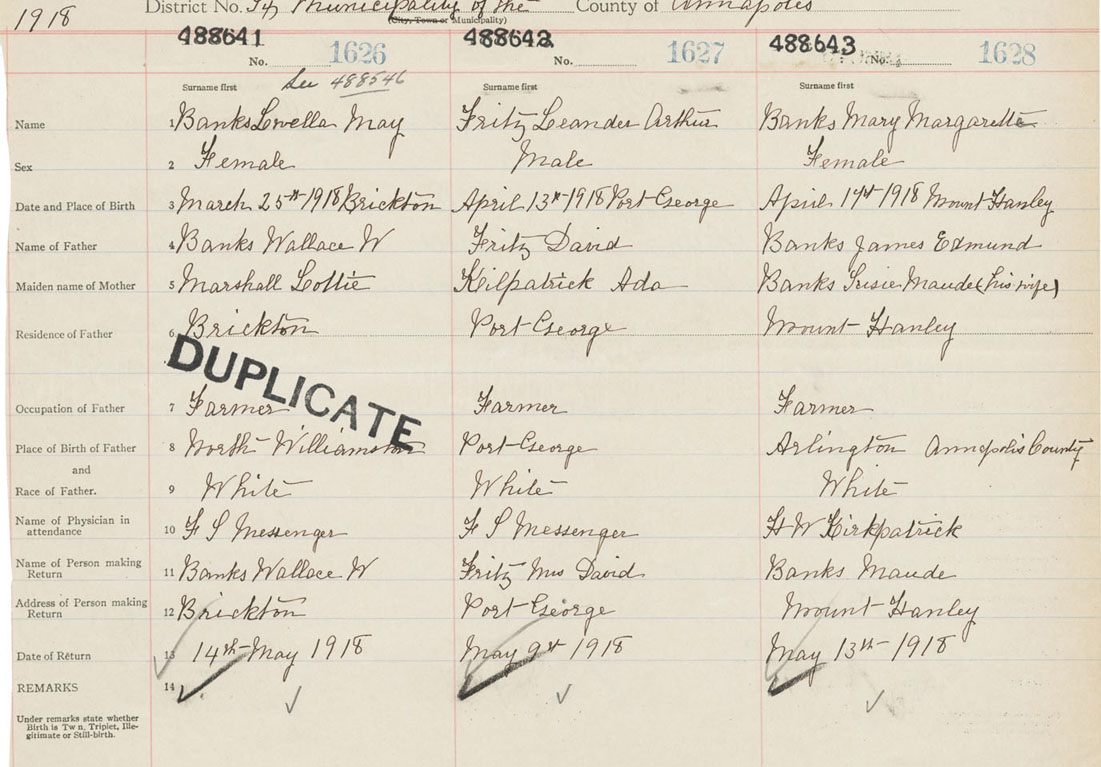 1918 District No. 34 Municipality of the County of Annapolis
(City, Town or Municipality)
488641 488642 488643
No. 1626 No. 1627 No. 1628
See 488546
Surname first Surname first Surname first
Name 1 Banks Lowella May Fritz Leander Arthur Banks Mary Margarette
Sex 2 Female Male Female
Date and Place of Birth 3 March 25th 1918 Brickton April 13th 1918 Port George April 1918 Mount Hanley
Name of Father 4 Banks Wallace W Fritz David Banks James Edmund
Maiden name of Mother 5 Marshall Lottie Kilpatrick Ada Banks Susie Maude (his wife)
Residence of Father 6 Brickton Port George Mount Hanley
DUPLICATE
Occupation of Father 7 Farmer Farmer Farmer
Place of Birth of Father 8 North Williamston Port George Arlington Annapolis County
and
Race of Father. 9 White White White
Name of Physician in
attendance 10 F S Messenger F S Messenger H W Kirkpatrick
Name of Person making
Return 11 Banks Wallace W Fritz Mrs David Banks Maude
Address of Person making
Return 12 Brickton Port George Mount Hanley
Date of Return 13 14th May 1918 May 9th 1918 May 13th 1918
REMARKS 14
Under remarks state whether
Birth is Tw n, Triplet, Ille-
gitimate or Still-birth.